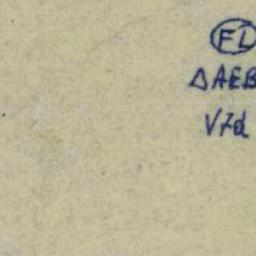 FL
ΔAEB
V7d